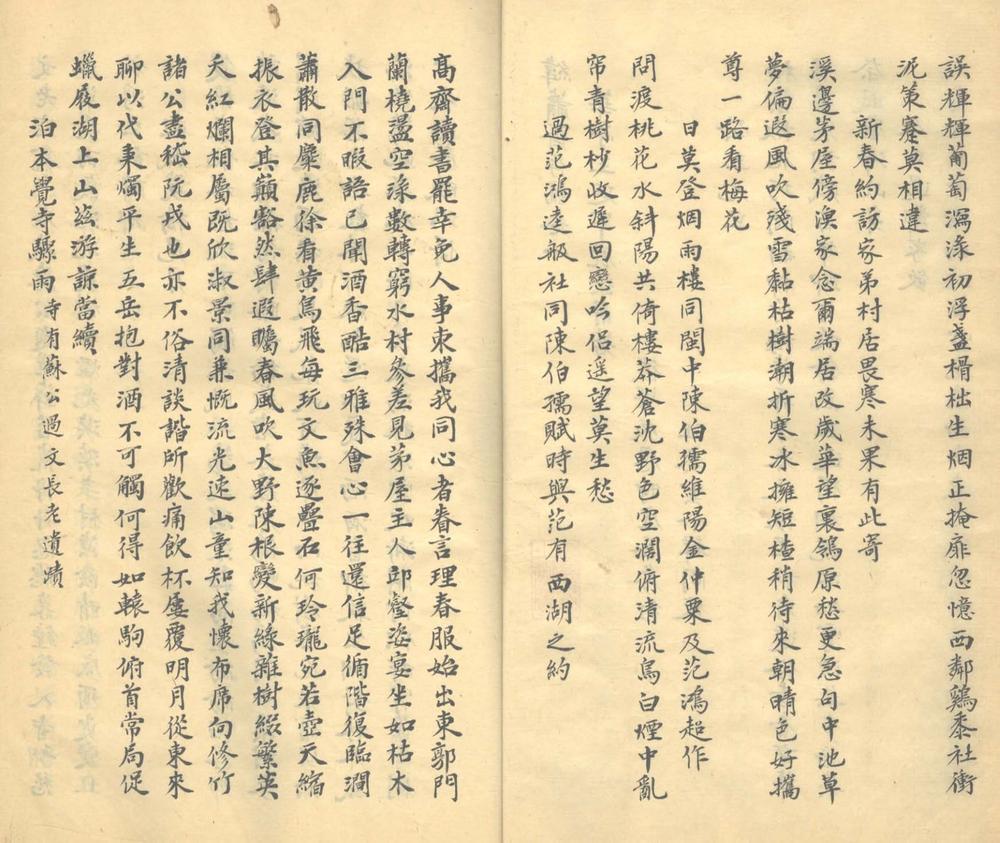 誤輝輝葡萄瀉淥初浮盞榾柮生烟正掩扉忽憶西鄰鷄黍社衝
泥策蹇莫相違
新春約訪家弟村居畏寒未果有此寄
溪邊茅屋傍漁家念爾端居改歲華望裏鴒原愁更急句中池草
夢偏遐風吹殘雪黏枯樹潮折寒冰擁短楂稍待來朝晴色好攜
尊一路看梅花
日莫登烟雨樓同閩中陳伯孺維陽金仲粟及范鴻超作
問渡桃花水斜陽共倚樓莽蒼沈野色空濶俯清流鳥白煙中亂
帘青樹杪收遲回戀吟侶遥望莫生愁
過范鴻逵舨社同陳伯孺賦時與范有西湖之約
高齋讀書罷幸免人事束攜我同心者眷言理春服始出東郭門
蘭橈盪空淥數轉窮水村參差見茅屋主人郎壑姿宴坐如枯木
入門不暇語已聞酒香酷三雅殊會心一往還信足循階復臨澗
蕭散同麋鹿徐看黄鳥飛每玩文魚逐疊石何玲瓏宛若壺天縮
振衣登其巔豁然肆遐矚春風吹大野陳根變新綠雜樹綴繁英
夭紅爛相屬既欣淑景同兼慨流光速山童知我懷布席向修竹
諸公盡嵇阮戎也亦不俗清談諧所歡痛飲杯屡覆明月從東來
聊以代秉燭平生五岳抱對酒不可觸何得如轅駒俯首常局促
蠟屐湖上山茲游諒當續
泊本覺寺驟雨寺有蘇公過文長老遺蹟